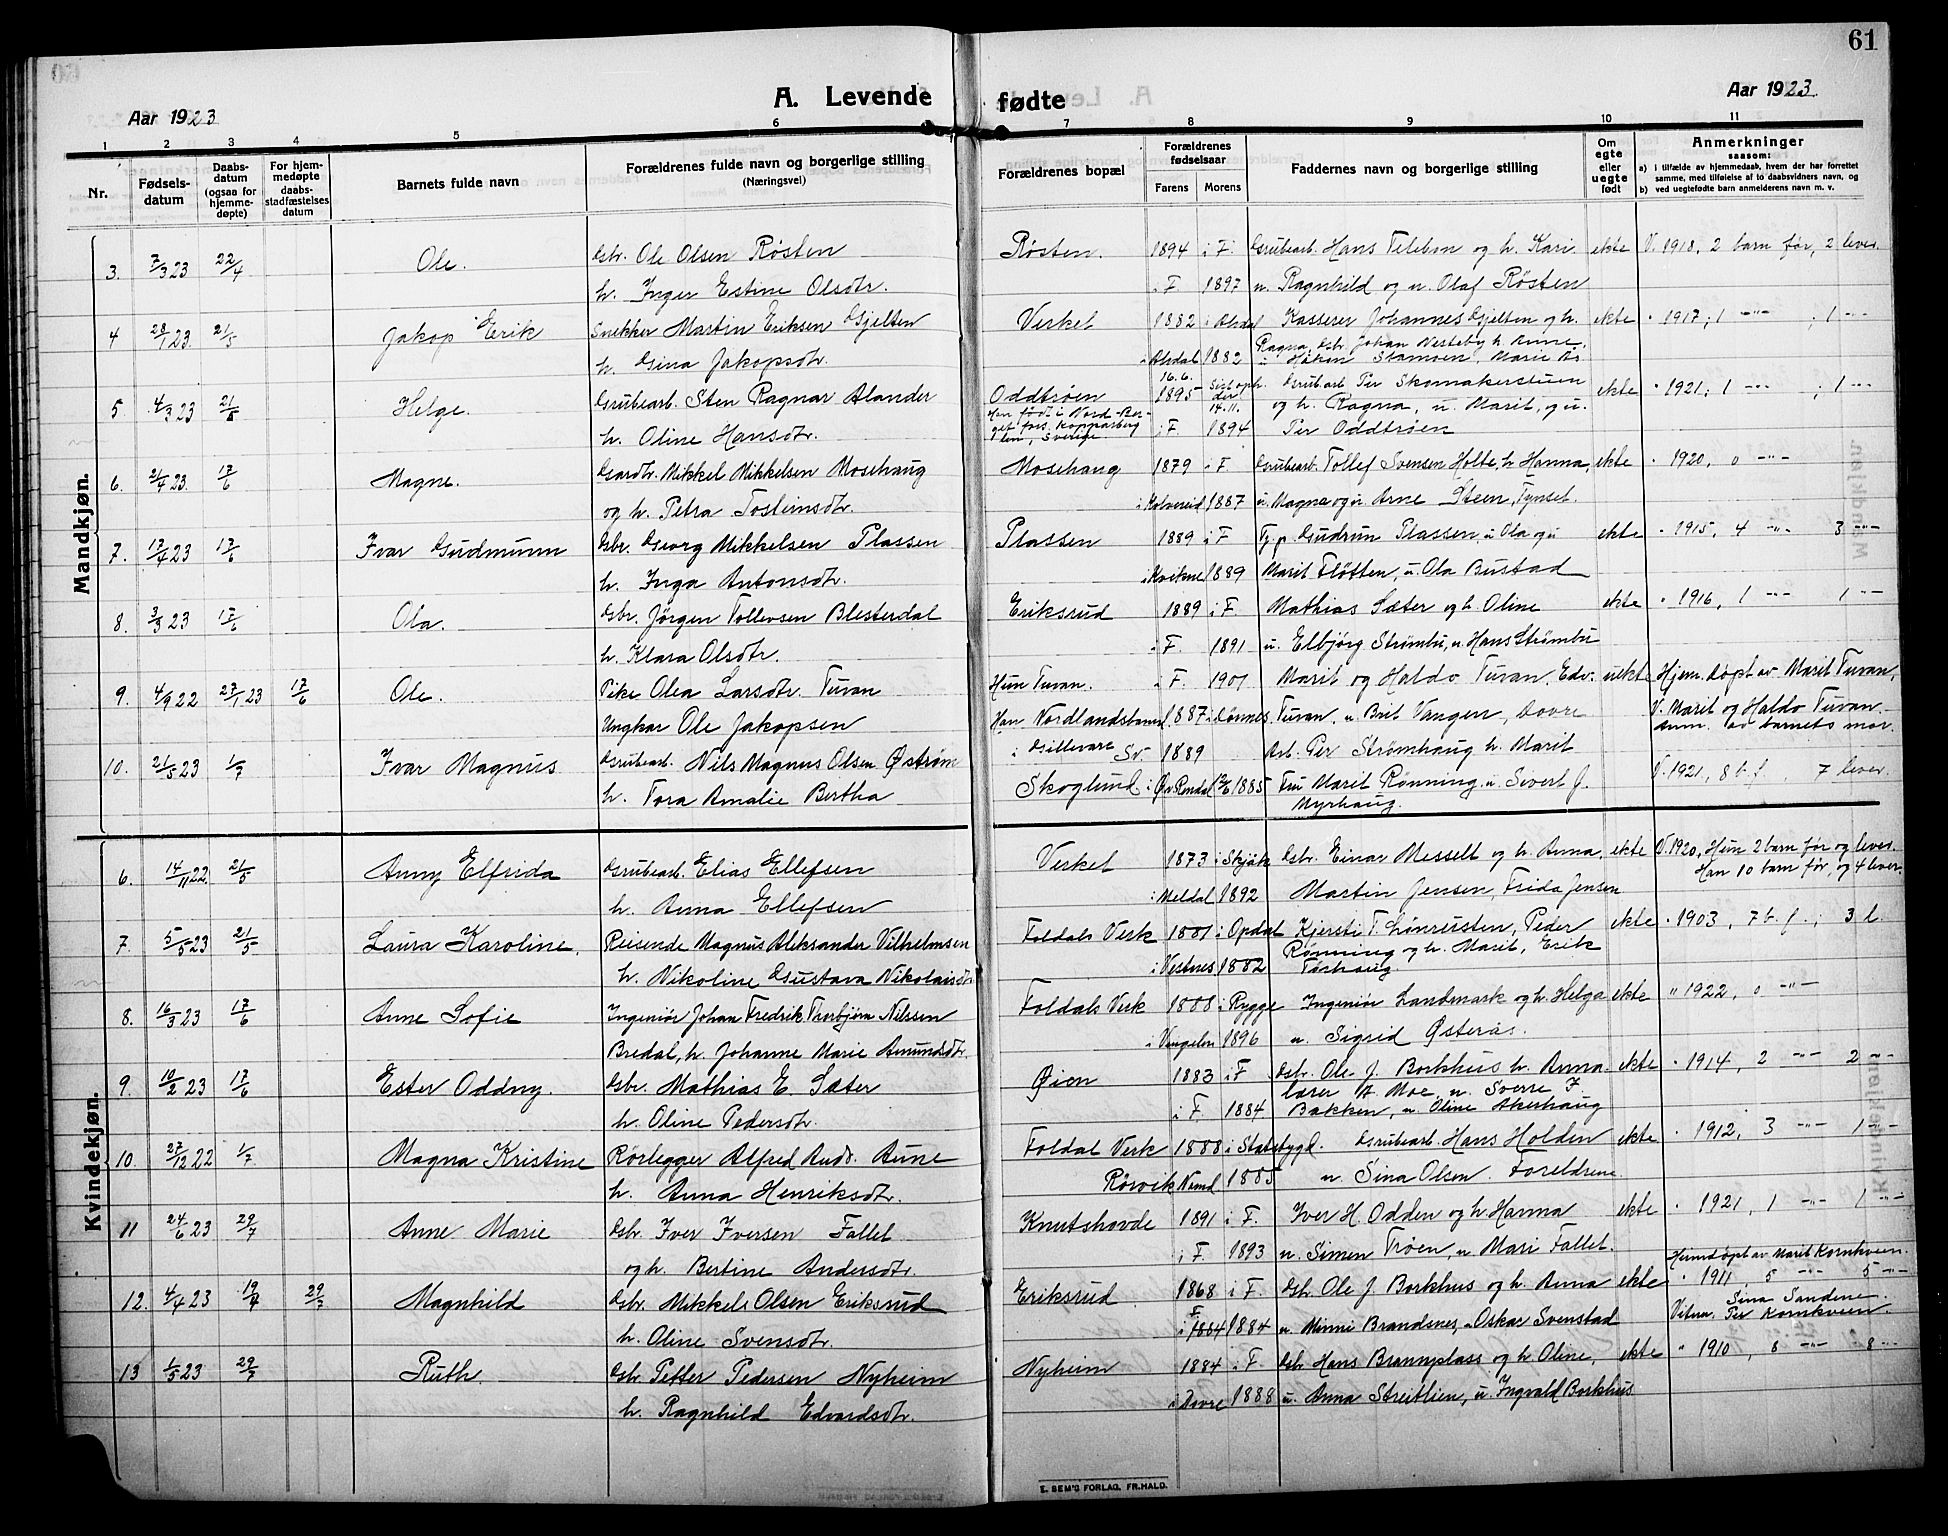 61
Aar 1923
A. Levende fødte
Aar 1923.
1 2 3 4 5 6 7 8 9 10 11
Nr.
Fødselsdatum
Daabsdatum (ogsaa for hjemmedøpte)
For hjemmedøpte daabsstadfæstelses datum
Barnets fulde navn
Forældrenes fulde navn og borgerlige stilling
(Næringsvei)
Forældrenes bopæl
Forældrenes fødselsaar
Farens Morens
Faddernes navn og borgerlige stilling
Om egte eller uegte født
Anmerkninger
saasom:
a) i tilfælde av hjemmedaab, hvem der har forrettet samme, med tilføielse af to daabsvidners navn, og
b) ved uegtefødte barn anmelderens navn m. v.
Mandkjøn.
3. 7/3 23 22/4 Ole. Gbr. Ole Olsen Røsten Røsten. 1894 i F. Grubearb. Hans Telebon og h. Kari. ekte V. 1918, 2 barn før, 2 lever.
h. Inger Estine Olsdtr. i F. 1897 u. Ragnhild og u. Olaf Røsten
4 28/1 23 21/5 Jakop Erik Snekker Martin Eriksen Gjelten Verket 1882 i Alvdal Kasserer Johannes Gjelten og h. ekte " 1917, 1 -"- , 1 -"-
h. Gina Jakopsdtr. i Alvdal 1882 Ragna, Gbr. Johan Nesteby h. Anne,
Håkon Stamoen, Marie
5 4/3 23 21/5 Helge. Grubearb. Sten Ragnar Alander Oddtrøen 16.6. 1895 Grubearb. Per Skomakerstuen ekte " 1921, 1 -"- , 1 -"-
h. Oline Hansdtr. Han født i Nord-Berget fors. Kopparberg len, Sverige i F. 14.11. 1894 og h. Ragna, u. Marit, og u.
Per Oddtrøen
6. 2/4 23. 17/6 Magne. Gardbr. Mikkel Mikkelsen Mosehaug Mosehaug 1879 i F. Grubearb. Tollef Svensen Holte, h. Hanna, ekte " 1920, 0 -"-
og h. Petra Tosteinsdtr. i Kolvereid 1887 u. Magna og u. Arne Steen, Tynset.
7. 17/4 23 17/6 Ivar Gudmunn Gbr. Georg Mikkelsen Plassen Plassen 1889 i F. Tj.p. Gudrun Plassen, u. Ola og u. ekte " 1915, 4 -"- 3 -"-
h. Inga Antonsdtr. i Kvikne 1889 Marit Fløtten, u. Ola Bustad
8. 3/3 23 17/6 Ola. Gbr. Jørgen Tollevsen Blesterdal Eriksrud 1889 i F. Mathias Sæter og h. Oline ekte " 1916, 1 -"- 1 -"-
h. Klara Olsdtr. i F. 1891 u. Elbjørg Strømbu, u. Hans Strømbu
9. 4/9 22 27/1 23 17/6 Ole. Pike Olea Larsdtr. Turan Hun Turan. i F. 1901 Marit og Haldo Turan. Edv. uekte Hjem. døpt av Marit Turan,
Ungkar Ole Jakopsen Han Nordlandsbanen 1887 i Dønnes Turan, u. Brit Vangen, Dovre V. Marit og Haldo Turan.
Anm. av barnets mor.
10. 21/5 23 1/7 Ivar Magnus Grubearb. Nils Magnus Olsen Østrøm i Gillevare Sv. 1889 Arb. Per Strømhaug h. Marit
h. Tora Amalie Bertha Skoglund i Øv. Rendal 1885 Fru Marit Rønning, u. Sivert J. Myrhaug. V. 1921, 8 b. f. 7 lever.
Kvindekjøn.
6. 14/11 22. 21/5 Anny Elfrida Grubearb. Elias Ellefsen Verket 1873 i Skjåk Gbr. Einar Messelt og h. Anna, ekte V. 1920, Hun 2 barn før og lever.
h. Anna Ellefsen i Meldal 1892 Martin Jensen, Frida Jensen Han 10 barn før, og 4 lever.
7. 5/5 23 21/5 Laura Karoline. Reisende Magnus Aleksander Vilhelmsen Foldals Verk 1881 i Opdal Kjersti T. Lønrusten, Peder ekte " 1903, 7 b. f., 3 l.
h. Nikoline Gustava Nikolaisdtr. i Vestnes 1882 Rønning og h. Marit, Erik
8. 16/3 23 17/6 Anne Sofie Ingeniør Johan Fredrik Thorbjørn Nilssen Foldals Verk 1888 i Rygge Ingeniør Landmark og h. Helga ekte " 1922, 0 -"-
Bredal, h. Johanne Marie Amundsdtr. i Vingelen 1896 u. Sigrid Østerås.
9. 10/2 23 17/6 Ester Oddny. Gbr. Mathias E. Sæter Øien 1883 i F. Gbr. Ole J. Borkhus h. Anna. ekte " 1914, 2 -"- 2 -"-
h. Oline Pedersdtr. i F. 1884 lærer A. Moe, u. Sverre J.
Bakken, u. Oline Akerhaug
10. 27/12 22 1/7 Magna Kristine Rørlegger Alfred And. Aune Foldal Verk 1888 i Stadsbygd. Grubearb. Hans Holden ekte " 1912, 3 -"- 1 -"-
h. Anna Henriksdtr. Rørvik Namd. 1885 u. Sina Olsen. Foreldrene
11 24/6 23 29/7 Anne Marie Gbr. Iver Iversen Fallet Knutshovde 1891 i F. Iver H. Odden og h. Hanna ekte " 1921, 1 -"- 1 -"-
og h. Bertine Andersdtr. i F. 1893 u. Simen Trøen, u. Mari Fallet.
12. 4/4 23 19/4 29/7 Magnhild Gbr. Mikkel Olsen Eriksrud Eriksrud 1868 i F. Gbr. Ole J. Borkhus og h. Anna ekte Hjemdøpt av Marit Kornkveen.
" 1911, 5 -"- 5 -"-
h. Oline Svensdtr. i F. 1884 1884 u. Minni Brandsnes, u. Oskar Svenstad Vitner. Sina Sandene.
Per Kornkveen.
13 1/5 23 29/7 Ruth. Gbr. Petter Pedersen Nyheim Nyheim 1884 i F. Gbr. Hans Brannplass og h. Oline, ekte " 1910, 8 -"- 8 -"-
h. Ragnhild Edvardsdtr. i Dovre 1888 u. Anna Streitlien, u. Ingvald Borkhus
E. SEM'S FORLAG, FR.HALD.